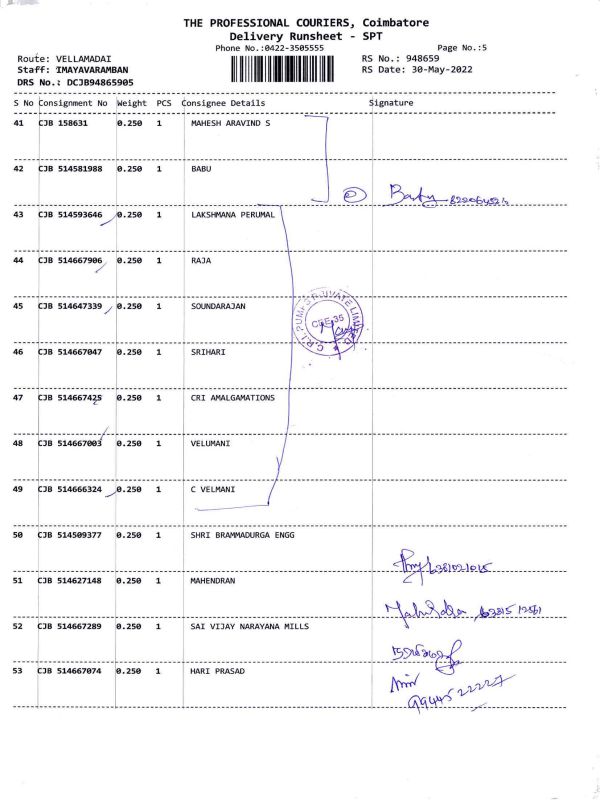 THE PROFESSIONAL COURIERS, Coimbatore
Delivery Runsheet - SPT
Phone No.:0422-3505555
Page No.:5
Route: VELLAMADAI
RS No.: 948659
Staff: IMAYAVARAMBAN
RS Date: 30-May-2022
DRS No.: DCJB94865905
S No Consignment No Weight PCS Consignee Details Signature
41 CJB 158631 0.250 1 MAHESH ARAVIND S
42 CJB 514581988 0.250 1 BABU
43 CJB 514593646 0.250 1 LAKSHMANA PERUMAL
44 CJB 514667906 0.250 1 RAJA
45 CJB 514647339 0.250 1 SOUNDARAJAN
C.R.I. PUMPS PRIVATE LIMITED
46 CJB 514667047 0.250 1 SRIHARI
47 CJB 514667425 0.250 1 CRI AMALGAMATIONS
48 CJB 514667003 0.250 1 VELUMANI
49 CJB 514666324 0.250 1 C VELMANI
50 CJB 514509377 0.250 1 SHRI BRAMMADURGA ENGG
6381021015
51 CJB 514627148 0.250 1 MAHENDRAN
52 CJB 514667289 0.250 1 SAI VIJAY NARAYANA MILLS
53 CJB 514667074 0.250 1 HARI PRASAD
9944522227